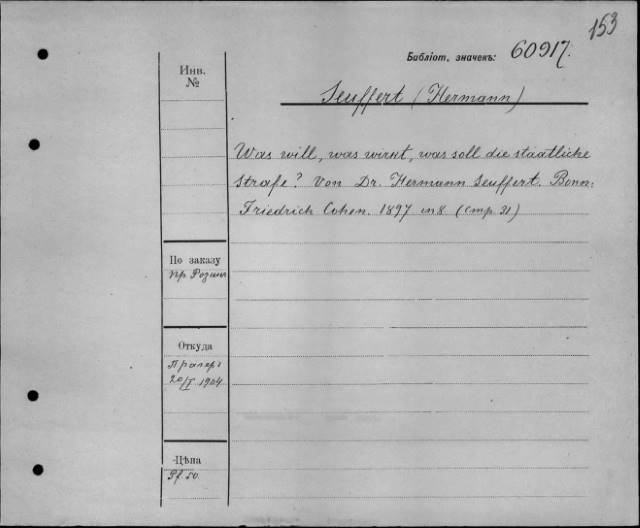 153
Библіот. значекъ: 60917.
Инв.
№
Seuffert (Hermann)
Was will, was wirkt, was soll die staatliche
Strafe? Von Dr. Hermann Seuffert. Bonn.
Friedrich Cohen. 1897 in 8 (стр. 21)
По заказу
пр
Откуда
Прагеръ
20/I 1904
Цѣна
Pf. 50